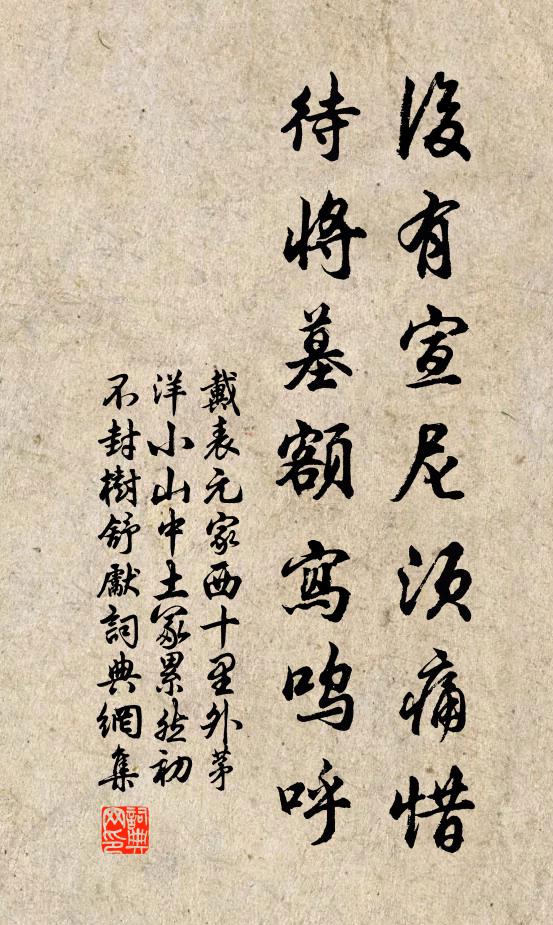 後有宣尼須痛惜
待將墓額寫嗚呼
戴表元家西十里外茅
洋小山中土冢累然初
不封樹舒獻詞典網集
詞典網印